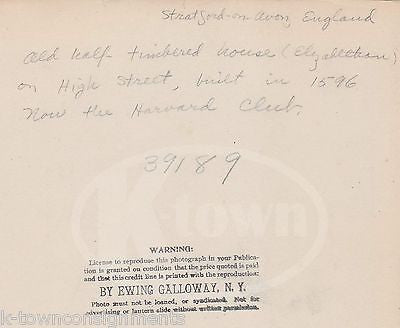 Stratford-on-Avon, England
Old half-timbered house (Elizabethan)
on High Street, built in 1596
Now the Harvard Club.
39189
K-town
WARNING:
License to reproduce this photograph in your Publica-
tion is granted on condition that the price quoted is paid
and that this credit line is printed with the reproduction:
BY EWING GALLOWAY, N. Y.
Photo must not be loaned, or syndicated. Not for
advertising or lantern slide without written permission.
k-townconsignments